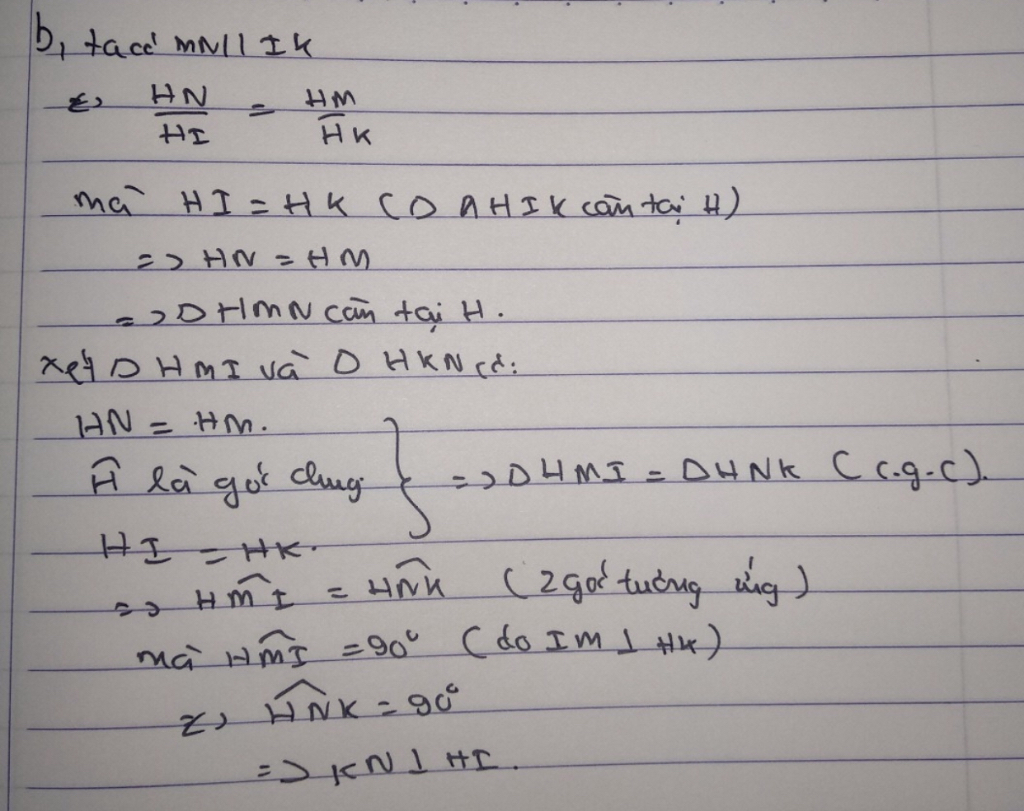 b, ta có MN // IK
=> HN/HI = HM/HK
mà HI = HK (Δ AHIK cân tại H)
=> HN = HM
=> Δ HMN cân tại H.
xét Δ HMI và Δ HKN có:
HN = HM.
Ĥ là góc chung } => Δ HMI = Δ HNK (c.g.c).
HI = HK.
=> HM̂I = HN̂K (2 góc tương ứng)
mà HM̂I = 90° (do IM ⊥ HK)
=> HN̂K = 90°
=> KN ⊥ HI.